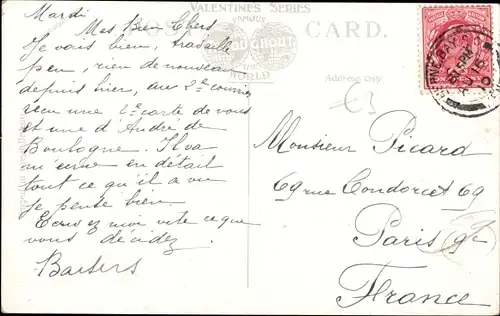 VALENTINES SERIES
FAMOUS
POST CARD.
WORLD
Address Only
Mardi
Mes Bien Chers
Je vais bien, travaille
peu, rien de nouveau
depuis hier, au 2e courrier
reçu une 2e carte de vous
et une d'Andre de
Boulogne. Il va
m'ecrire en détail
tout ce qu'il a vu
je pense bien.
Ecrivez moi vite ce que
vous décidez.
Baisers
£3
Monsieur Picard
69 rue Condorcet 69
Paris 9e
France